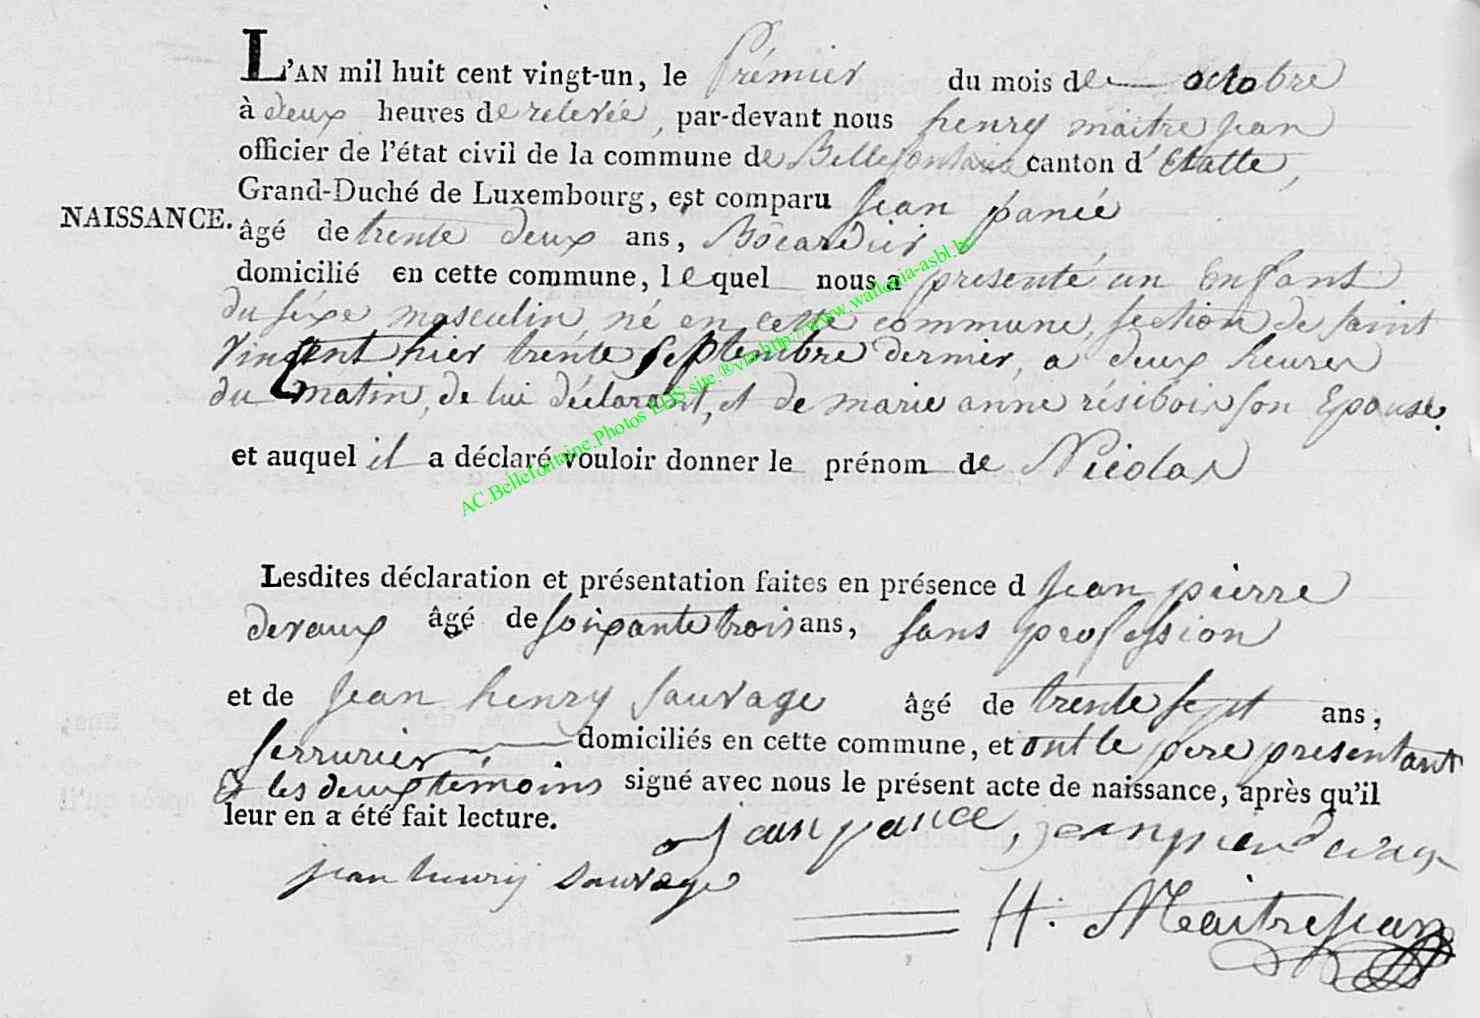 L'AN mil huit cent vingt-un, le Prémier du mois de octobre
à deux heures de relevée, par-devant nous henry maitrejean
officier de l'état civil de la commune de Bellefontaine canton d'Etalle,
Grand-Duché de Luxembourg, est comparu Jean panée
NAISSANCE.
âgé de trente deux ans, Bocardier
domicilié en cette commune, lequel nous a présenté un Enfant
du séxe masculin, né en cette commune, section de saint
Vincent hier trente septembre dernier, a deux heures
du matin, de lui déclarant, et de marie anne résibois son Epouse.
et auquel il a déclaré vouloir donner le prénom de Nicolas
AC.Bellefontaine.Photos
Lesdites déclaration et présentation faites en présence d Jean pierre
devaux âgé de soixante trois ans, sans profession
et de Jean henry sauvage âgé de trente sept ans,
serrurier domiciliés en cette commune, et ont le pere présentant
& les deux témoins signé avec nous le présent acte de naissance, après qu'il
leur en a été fait lecture.
jean henry Sauvage
H. Maitrejean